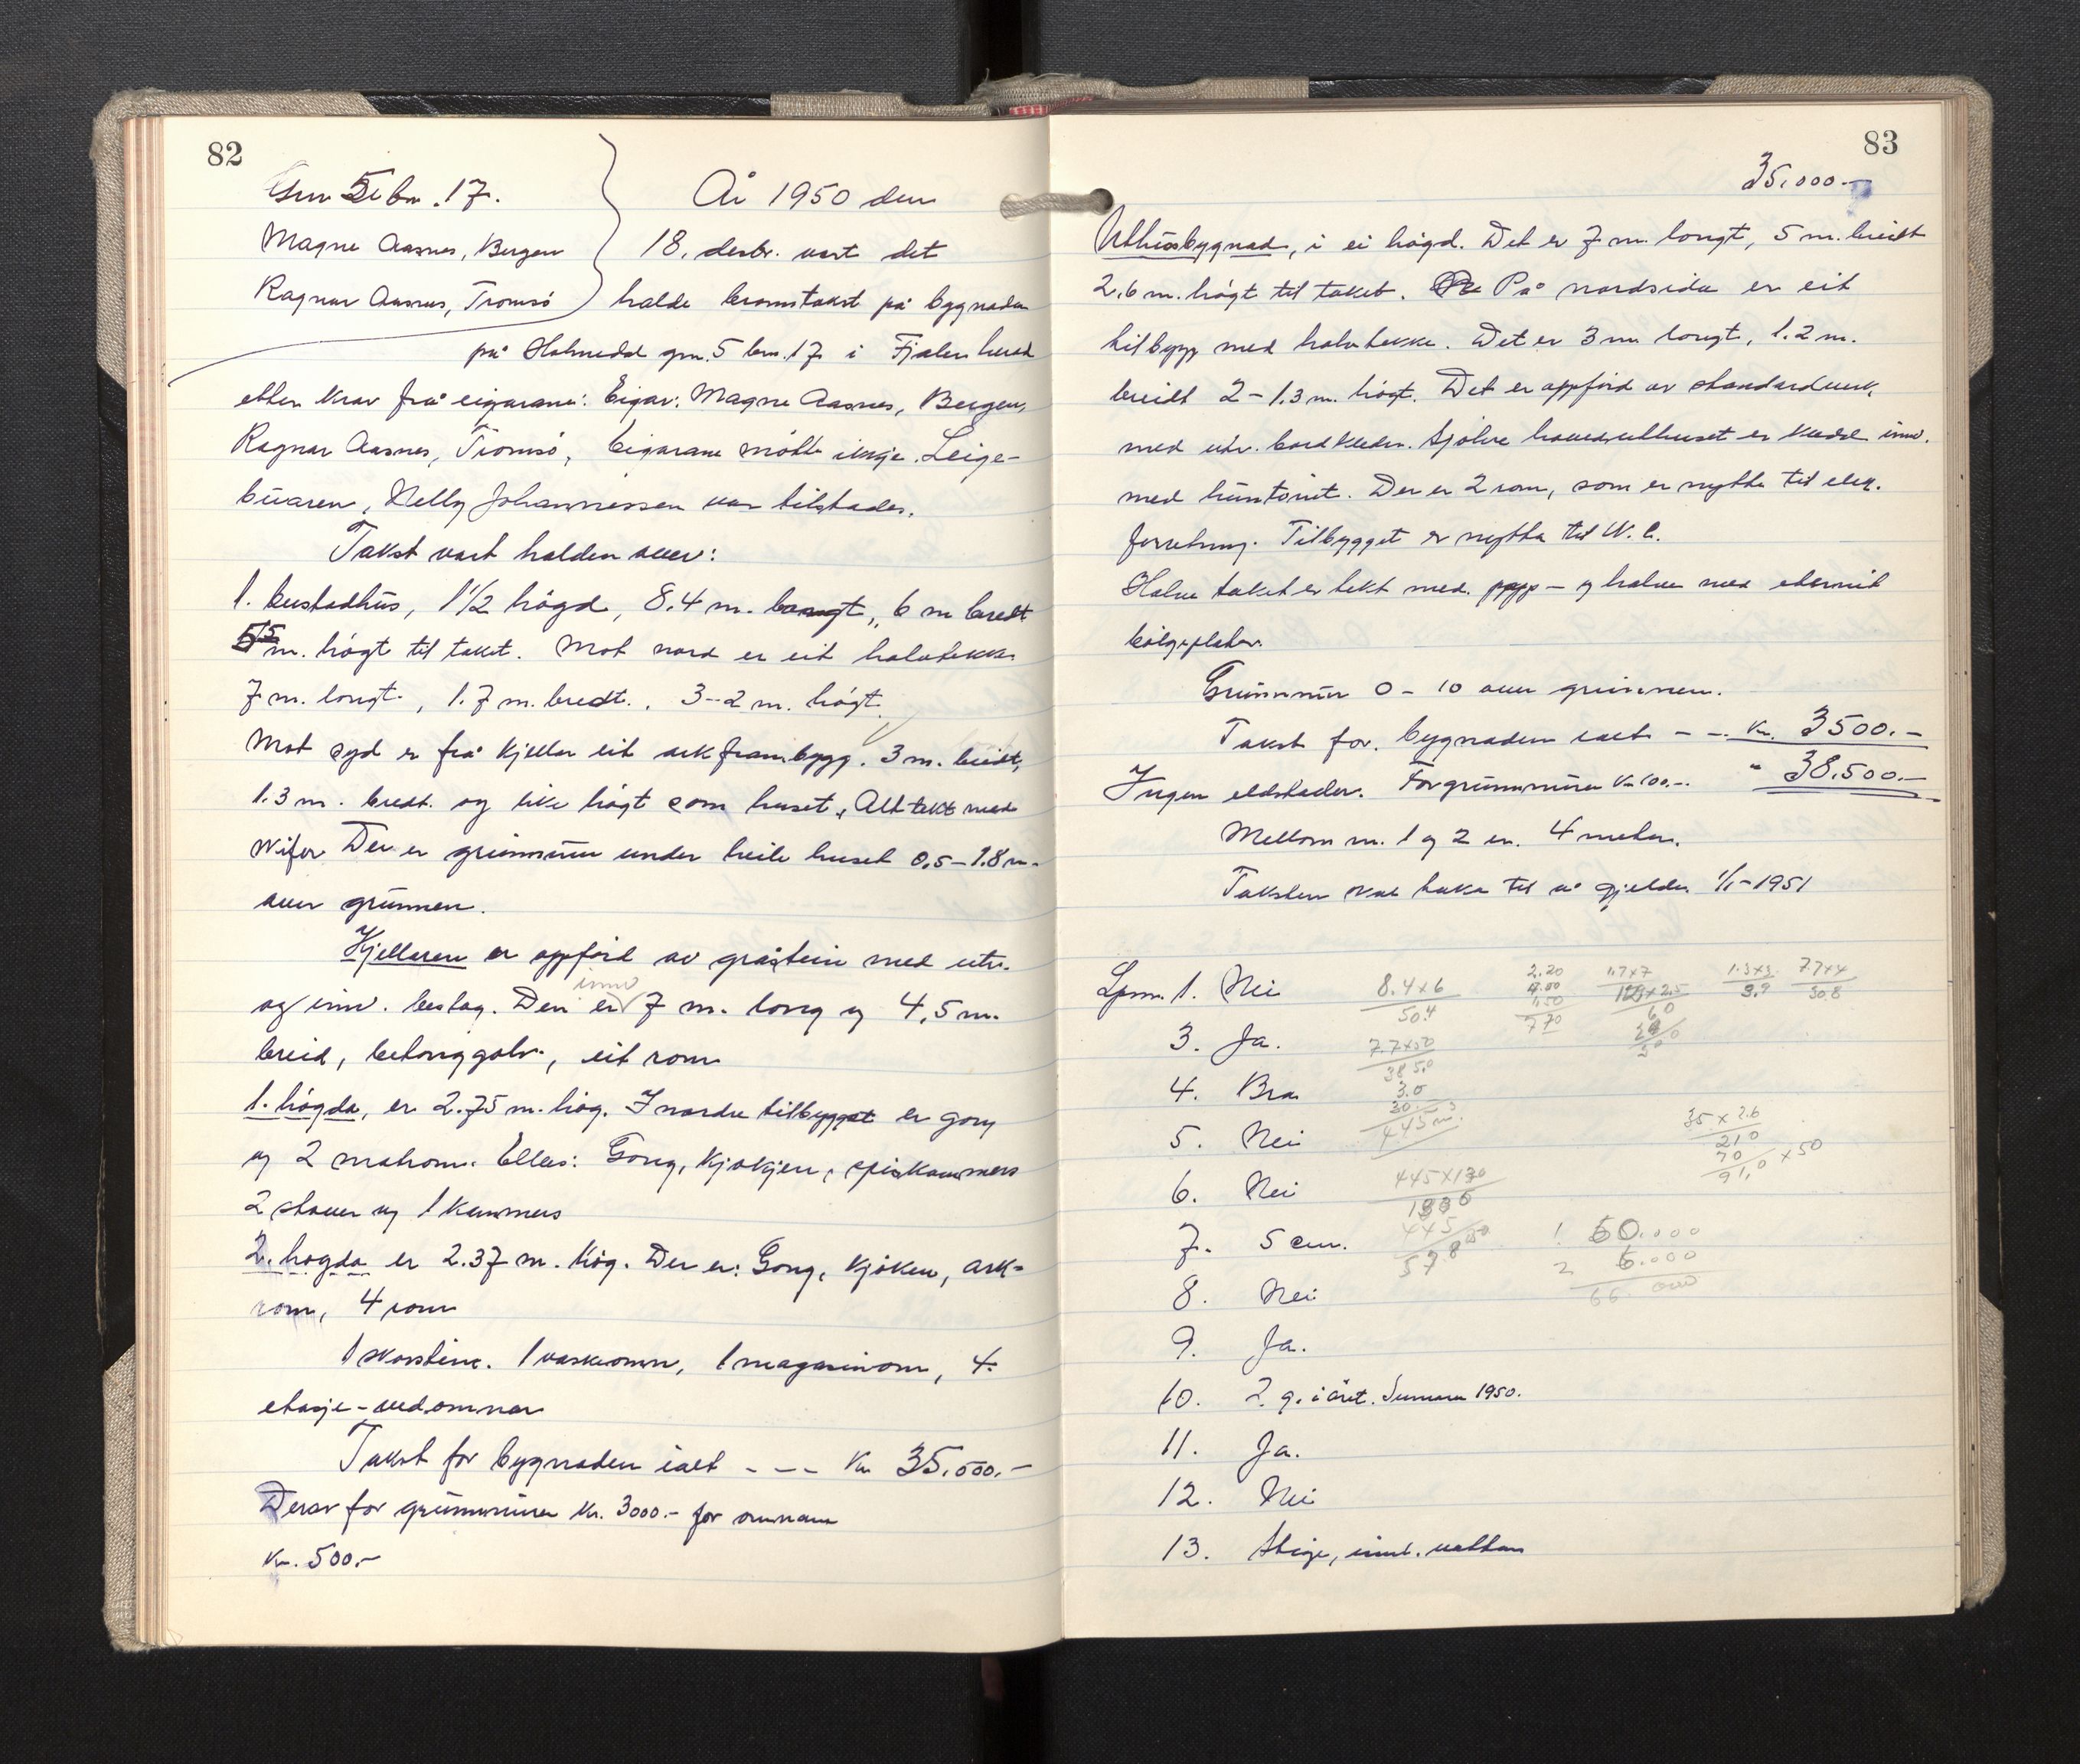 82
Gnr 5 bn. 17.
Magne Aasnes, Bergen
Ragnar Aasnes, Tromsö
År 1950 den
18. desbr. vart det
halde branntakst på bygnader
på Holmedal gnr. 5 bnr. 17 i Fjaler herad
etter krav frå eigarane: Eigar: Magne Aasnes, Bergen,
Ragnar Aasnes, Tromsö, Eigarane mötte ikkje. Leige-
buaren, Nelly Johannessen var tilstades.
Takst vart halden over:
1. bustadhus, 1 1/2 högd, 8.4 m. langt, 6 m bredt
m. högt til taket. Mot nord er eit halvtekke
7 m. langt, 1.7 m. bredt, 3-2 m. högt.
Mot syd er frå kjellar eit arkframbygg. 3 m. breidt,
1.3 m. bredt. og like högt som huset. Alt tekt med
skifer Der er grunnmur under heile huset 0,5-1.8 m.
over grunnen.
Kjellaren er oppförd av gråstein med utv.
og innv. beslag. Den er innv 7 m. lang og 4,5 m.
breid, betonggolv, eit rom
1. högda, er 2.75 m. hög. I nordre tilbygget er gang
og 2 matrom. Elles: Gang, kjökjen, spiskammers
2 stover og 1 kammers
2. högda er 2.37 m. hög. Der er: Gang, kjöken, ark-
rom, 4 rom
1 skorstein. 1 vaskeomn, 1 magasinomn, 4
etasje-vedomnar
Takst for bygnaden ialt - - - kr 35.000.-
Derav for grunnmuren kr. 3000.- for omnane
kr. 500.-
83
35.000.-
Uthusbygnad, i ei högd. Det er 7 m. langt, 5 m. breidt
2.6 m. högt til taket. På nordsida er eit
tilbygg med halvtekke. Det er 3 m langt, 1.2 m.
breidt 2-1.3 m. högt. Det er oppförd av standardverk,
med utv. bordkleder. Sjölve hoveduthuset er kledd innv.
med huntonit. Der er 2 rom, som er nytta til elek.
forretning. Tilbygget er nytta til W.C.
Halve taket er tekt med papp - og halve med eternit
bölgeplater.
Grunnmur 0-10 over grunnen.
Takst for bygnaden ialt - - kr. 3500.-
Ingen eldstader. For grunnmuren kr 100.-. " 38.500.-
Mellom nr. 1 og 2 er 4 meter.
Taksten skal taka til å gjelda 1/1-1951
Spm. 1. Nei
3. Ja.
4. Bra
5. Nei
6. Nei
7. 5 cm.
8. Nei
9. Ja.
10. 2 g. i året. Sumaren 1950.
11. Ja.
12. Nei
13. Stige, innl. vatten
8.4 x 6
50.4
7.7 x 50
385.0
3.0
445 m.
2.20
1.50
7 70
1.7 x 7
1.3 x 3
3.9
7.7 x 4
30.8
35 x 2.6
210
70
91,0 x 50
445 x 130
1 60.000
2 6.000
66.000